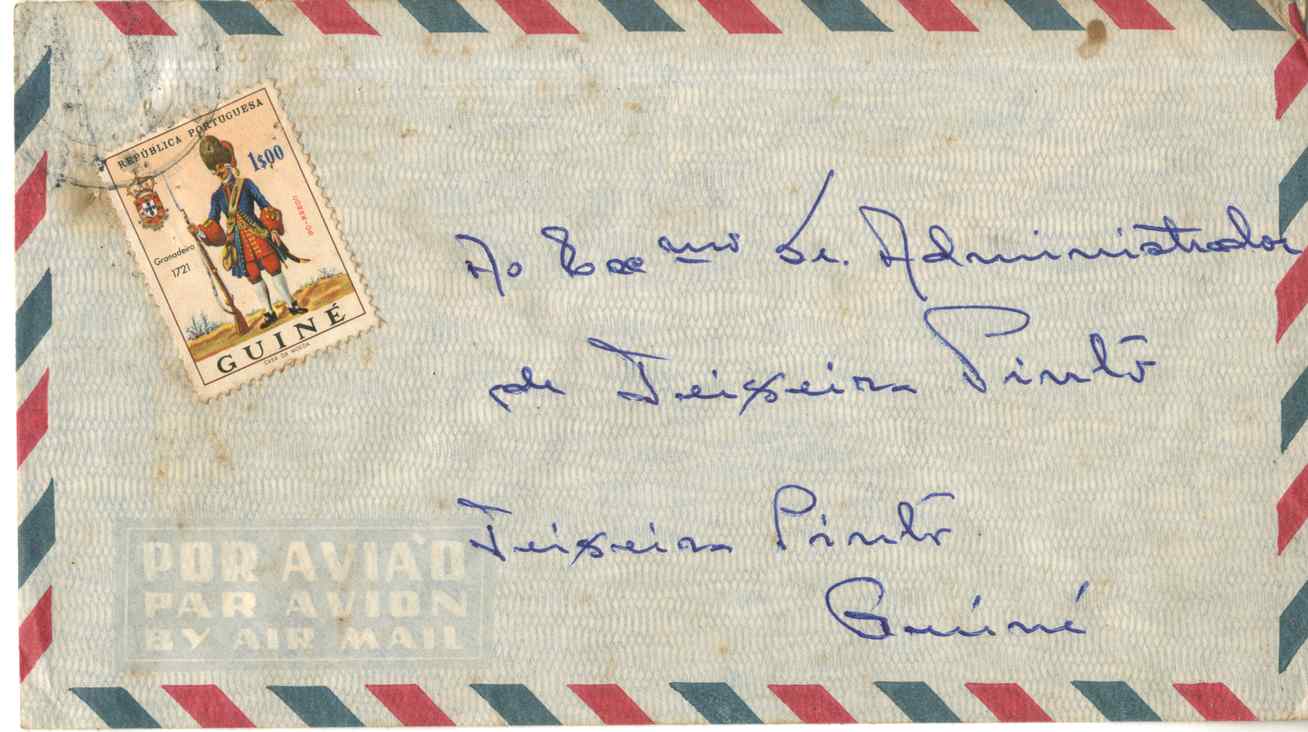 REPÚBLICA PORTUGUESA
1$00
Granadeiro
1721
GUINÉ
CASA DA MOEDA
Ao Exmo Sr. Administrador
de Teixeira Pinto
Teixeira Pinto
Guiné
POR AVIÃO
PAR AVION
BY AIR MAIL